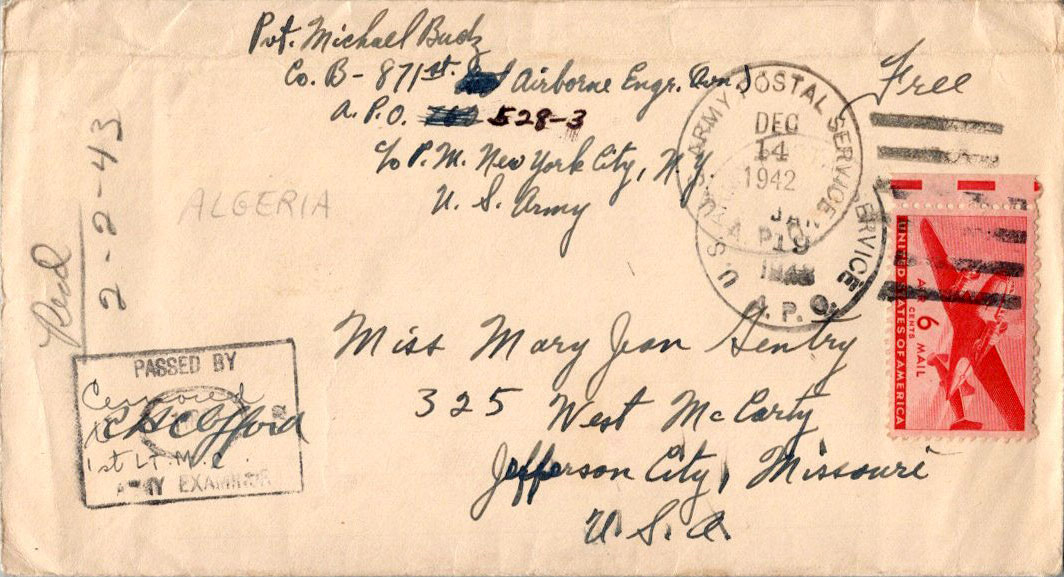 Pvt. Michael Budz
Co. B - 871st. Airborne Engr. (Avn.)
A.P.O. 528-3
c/o P.M. New York City, N.Y.
U. S. Army
Free
ARMY POSTAL SERVICE
DEC
14
1942
A.P.O.
JAN
19
U. S. SERVICE
A.P.O.
UNITED STATES OF AMERICA
AIR MAIL
6
CENTS
ALGERIA
2-2-43
Miss Mary Jean Gentry
325 West McCarty
Jefferson City, Missouri
U. S. A.
PASSED BY
Censored
1st Lt. M.C.
ARMY EXAMINER